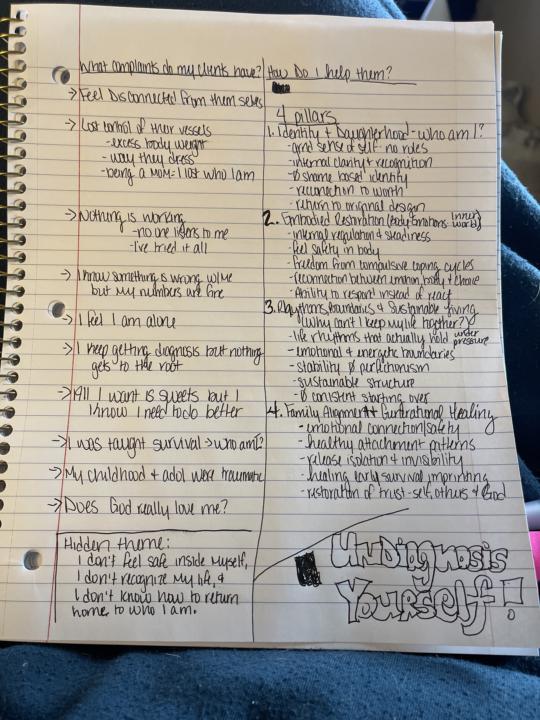 What complaints do my clients have?
→ Feel Disconnected from them selves
→ Lost control of their vessels
- excess body weight
- way they dress
- being a MOM = I lost who I am
→ Nothing is working
- no one listens to me
- I've tried it all
→ I know something is wrong w/me
but my numbers are fine
→ I feel I am alone
→ I keep getting diagnosis but nothing
gets to the root
→ All I want is sweets but I
know I need to do better
→ I was taught survival → who am I?
→ My childhood + adol were traumatic
→ Does God really love me?
Hidden theme:
I don't feel safe inside myself,
I don't recognize my life, +
I don't know how to return
home to who I am.
How Do I help them?
4 pillars
1. Identity + Daughterhood - who am I?
- grnd sense of self - no roles
- internal clarity + recognition
- Ø shame based identity
- reconnection to worth
- return to original design
2. Embodied Restoration (body, Emotions, inner world)
- internal regulation + steadiness
- feel safety in body
- freedom from compulsive coping cycles
- reconnection between body + choice
- Ability to respond instead of react
3. Rhythms, Boundaries + Sustainable living
(Why can't I keep my life together?)
- life rhythms that actually hold under pressure
- emotional + energetic boundaries
- stability Ø perfectionism
- sustainable structure
- Ø consistent starting over
4. Family Alignment + Generational Healing
- emotional connection/safety
- healthy attachment patterns
- release isolation + invisibility
- healing early survival imprinting
- restoration of trust - self, others + God
UnDiagnosis
Yourself!